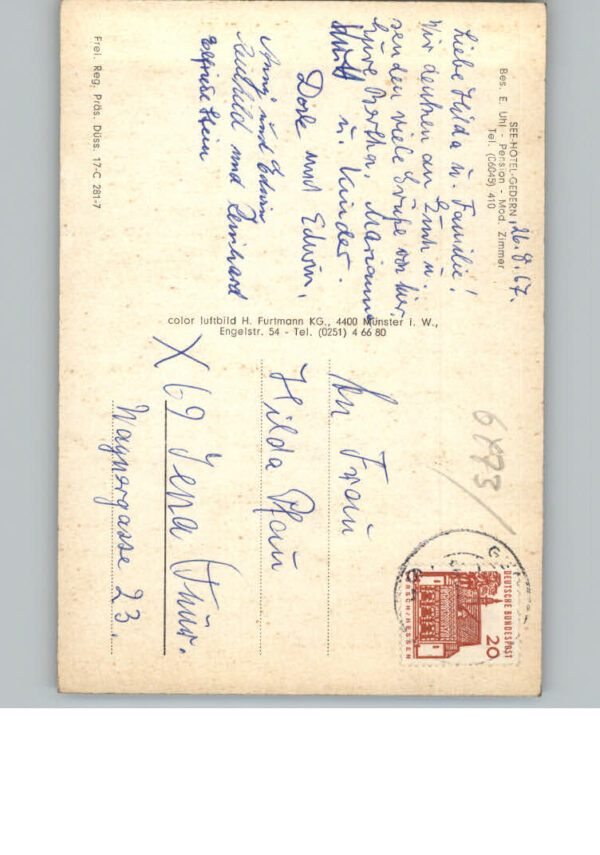 SEE-HOTEL-GEDERN, 26.8.67.
Bes. E. Uhl - Pension - Mod. Zimmer
Tel. (06045) 410
Liebe Hilda u. Familie!
Wir denken an Euch u.
senden viele Grüße von hier
Marianne
u. Kinder.
Dorle und Edwin,
Anni und Edwin
und Reinhard
Elfriede Stein
Frei. Reg. Präs. Düss. 17-C 281-7
color luftbild H. Furtmann KG., 4400 Münster i. W.,
Engelstr. 54 - Tel. (0251) 4 66 80
6473
DEUTSCHE BUNDESPOST
20
LORSCH/HESSEN
An Frau
Hilda Pfau
X 69 Jena (Thür.
Wagnergasse 23.